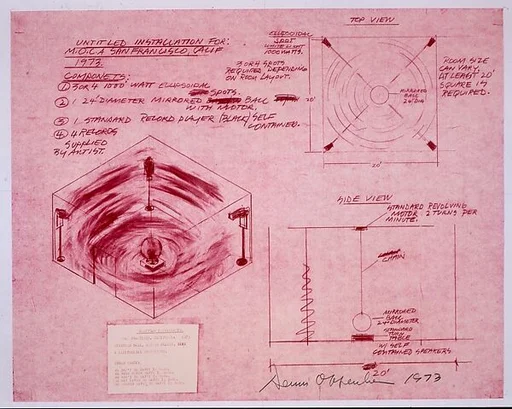 UNTITLED INSTALLATION FOR:
M.O.C.A SAN FRANCISCO, CALIF
1973.
COMPONETS:
① 3 OR 4 1000 WATT ELLIPSOIDAL
SPOTS.
② 1 24" DIAMETER MIRRORED BALL
WITH MOTOR.
③ 1 STANDARD RECORD PLAYER (BLACK) SELF
CONTAINED.
④ 4 RECORDS
SUPPLIED
BY ARTIST.
ELLIPSOIDAL
SPOT
WHITE LIGHT
1000 WATTS.
3 OR 4 SPOTS
REQUIRED DEPENDING
ON ROOM LAYOUT.
TOP VIEW
MIRRORED
BALL
24" DIA
20'
20'
ROOM SIZE
CAN VARY
AT LEAST 20'
SQUARE IS
REQUIRED.
SIDE VIEW
STANDARD REVOLVING
MOTOR 2 TURNS PER
MINUTE.
CHAIN
MIRRORED
BALL
24" DIAMETER
STANDARD
TURN
TABLE
W/ SELF
CONTAINED SPEAKERS
20'
Dennis Oppenheim 1973